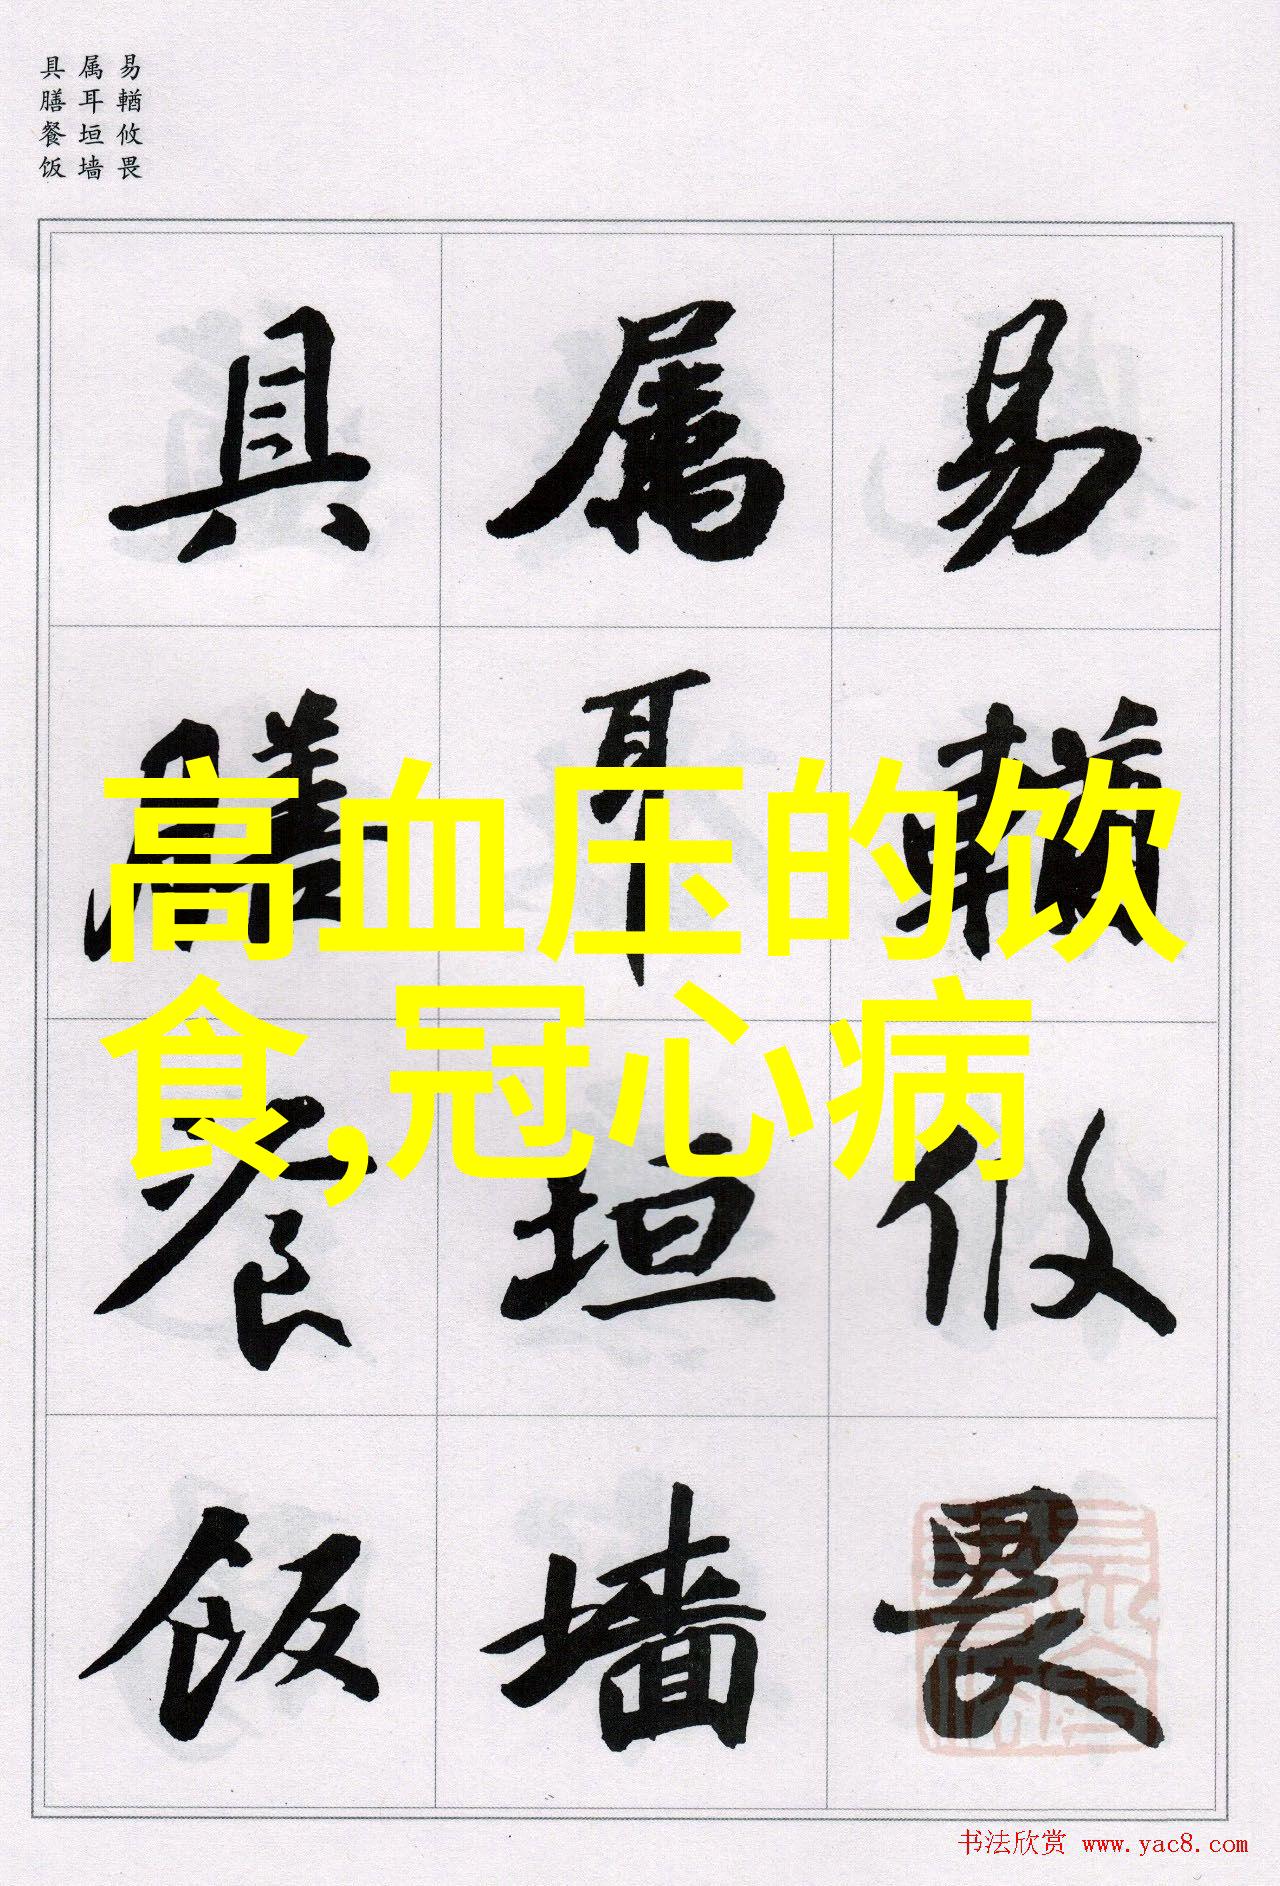 易輶攸畏
属耳垣墙
具膳餐饭
易輶攸畏
属耳垣墙
具膳餐饭
高血压的饮
食,冠心病
书法欣赏 www.yac8.com